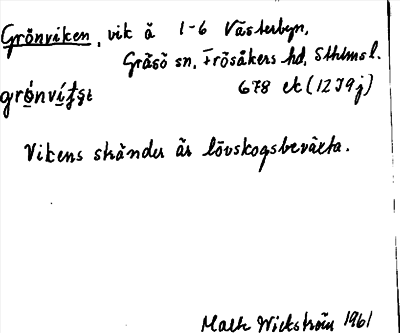 Grönviken, vik å 1-6 Västerbyn,
Gräsö sn, Frösåkers hd, Sthlms l.
678 ek (12I9j)
Vikens stränder är lövskogsbeväxta.
Wickström 1961